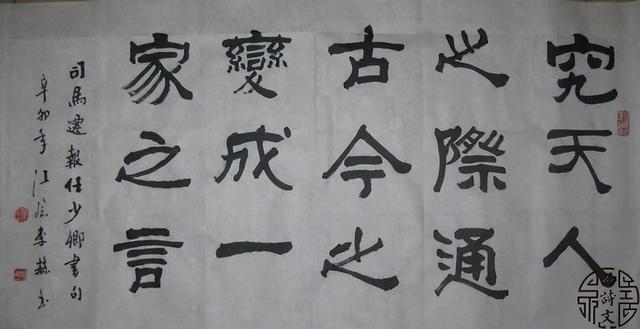 究天人
之際通
古今之
變成一
家之言
司馬遷報任少卿書句
辛卯年江陰李赫書
詩文